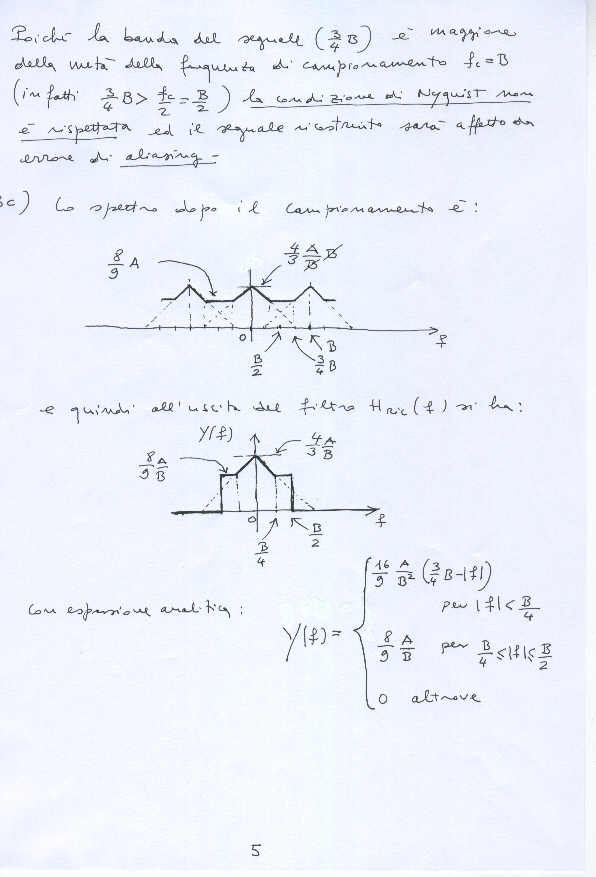 Poiché la banda del segnale (3/4 B) è maggiore
della metà della frequenza di campionamento fc = B
(infatti 3/4 B > fc/2 = B/2) la condizione di Nyquist non
è rispettata ed il segnale ricostruito sarà affetto da
errore di aliasing -
3c) Lo spettro dopo il campionamento è:
8/9 A
4/3 A/B B
0
B/2
3/4 B
B
f
e quindi all'uscita del filtro HRic(f) si ha:
Y(f)
8/9 A/B
4/3 A/B
0
B/4
B/2
f
con espressione analitica:
Y(f) =
16/9 A/B² (3/4 B - |f|)
per |f| < B/4
8/9 A/B per B/4 ≤ |f| ≤ B/2
0 altrove
5